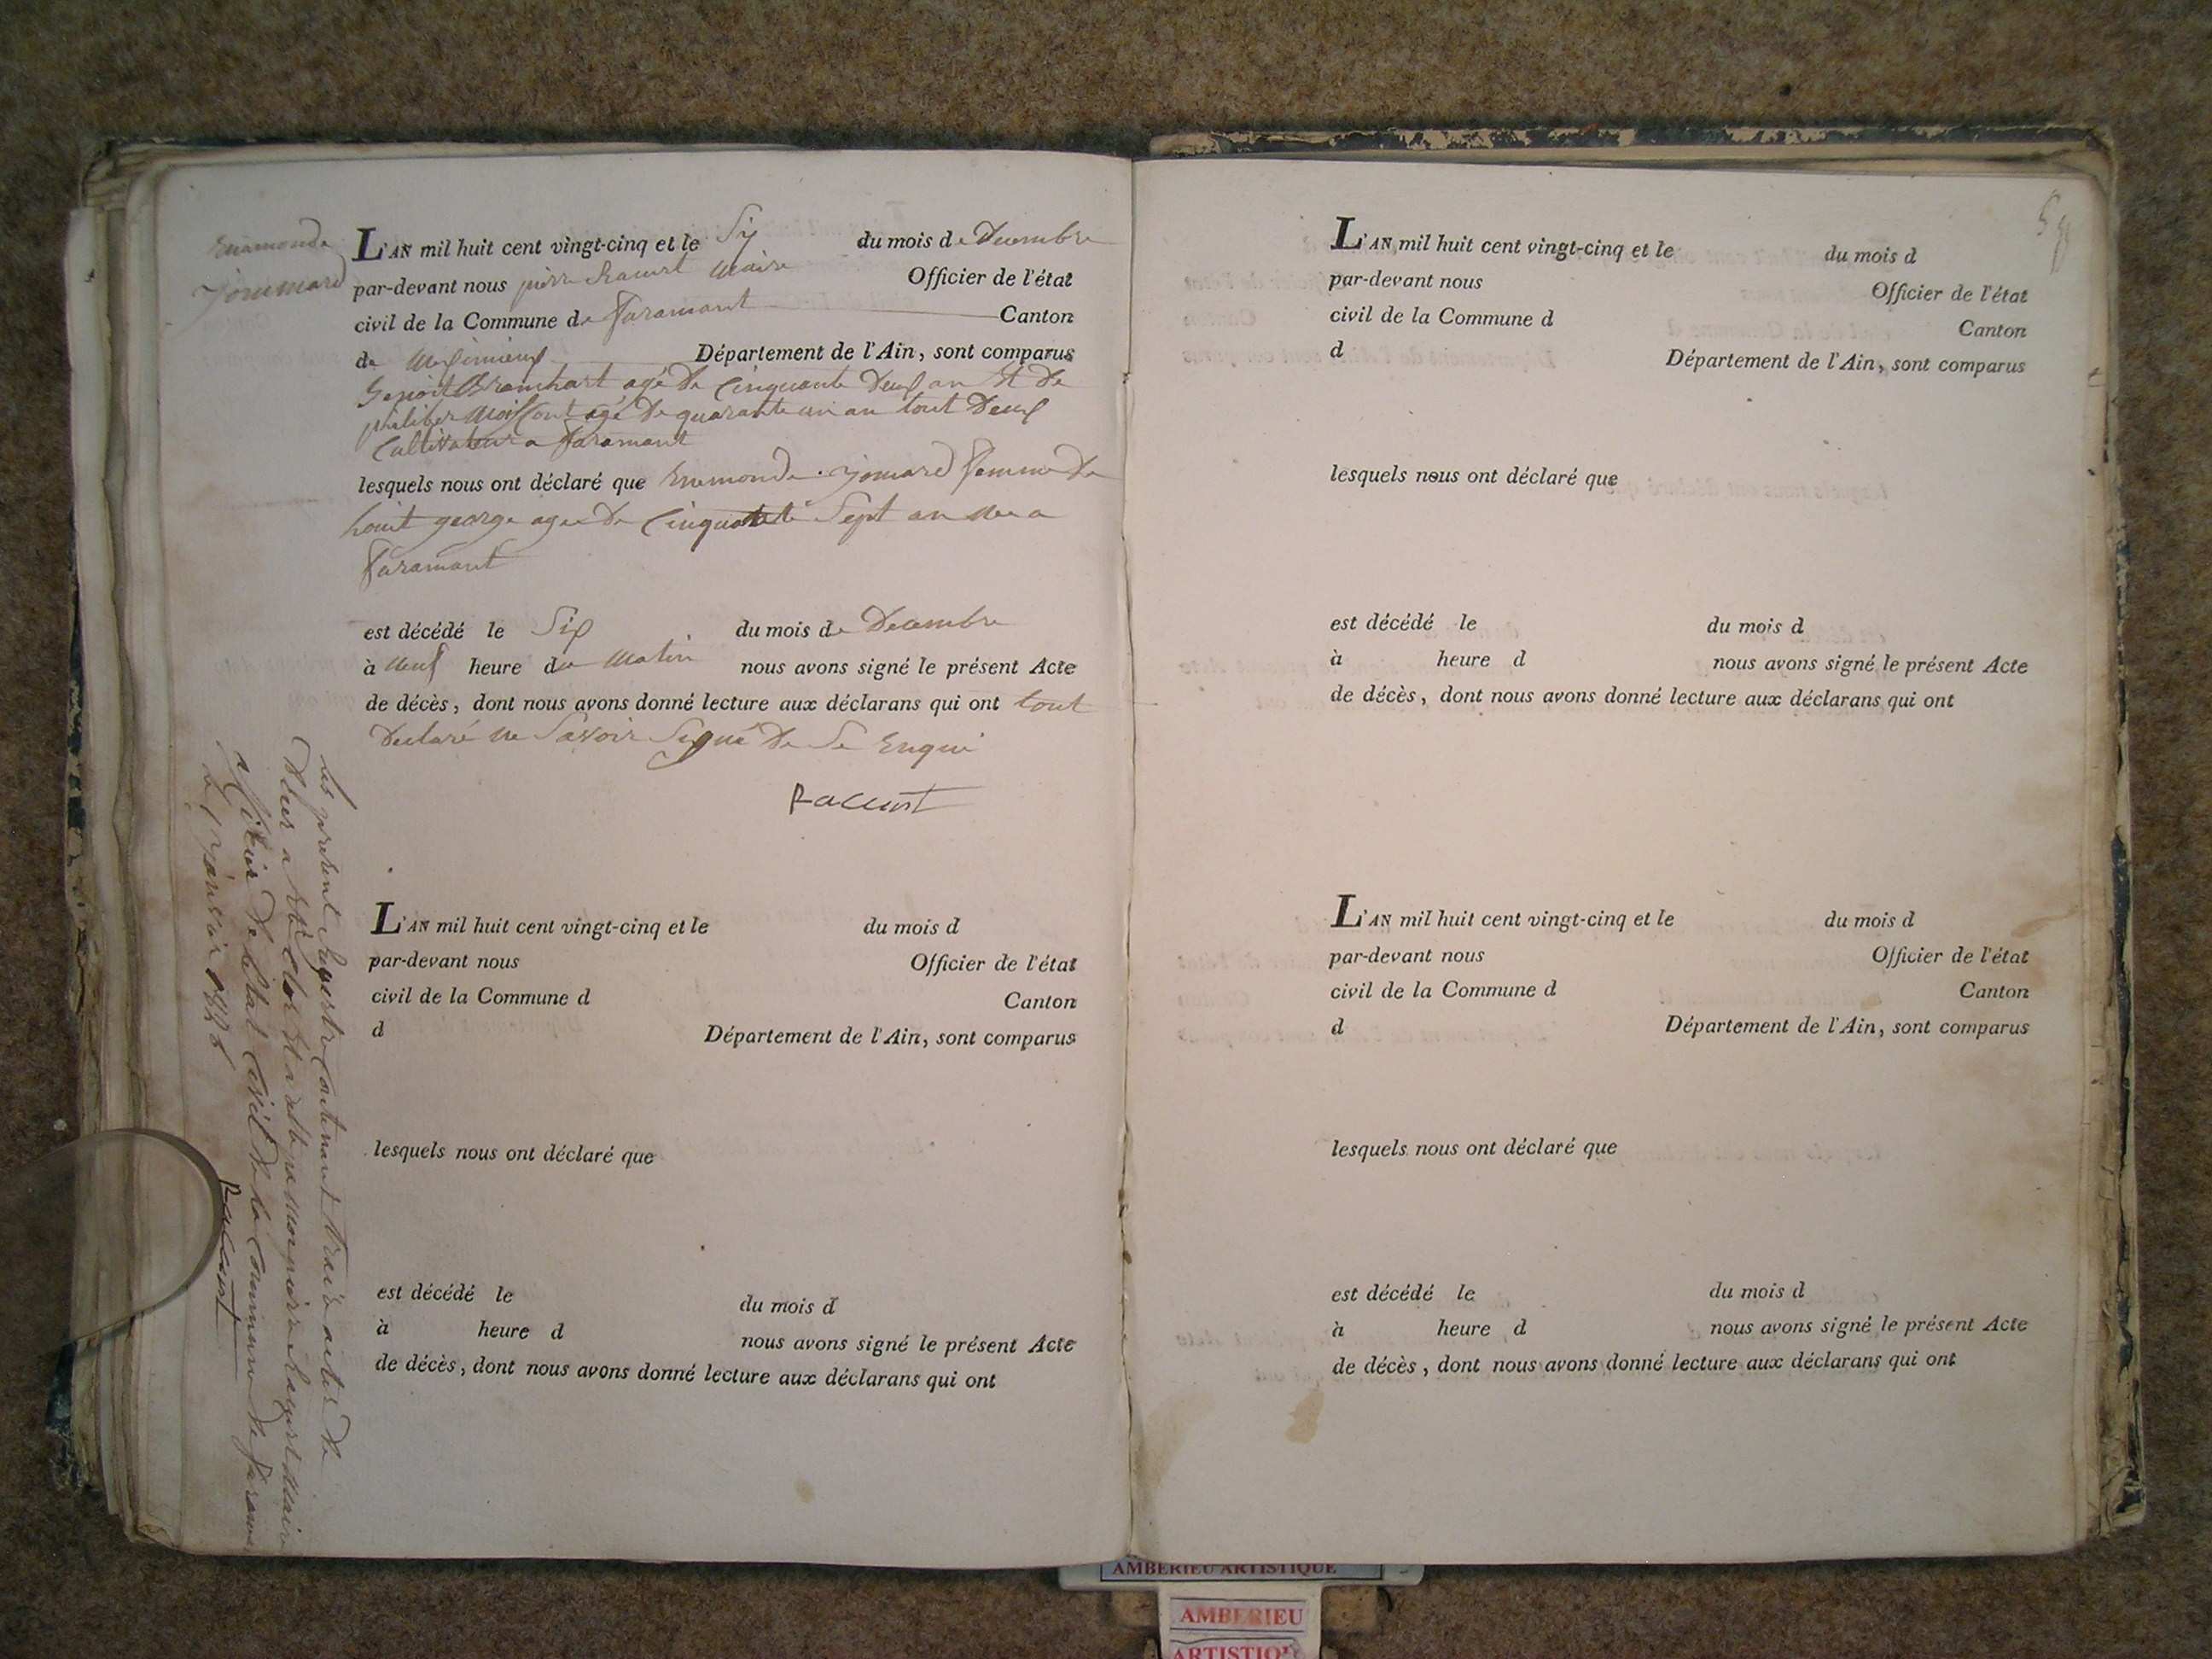 Enemonde
Jommard
L'AN mil huit cent vingt-cinq et le Six du mois de Decembre
par-devant nous pierre Racurt Maire Officier de l'état
civil de la Commune de Faramant Canton
de Meximieux Département de l'Ain, sont comparus
Benoit agé de cinquante deux an Et de
philiber agé de quarante un an tout deux
Cultivateur a Faramant
lesquels nous ont déclaré que Enemonde jomard femme de
george agee de Cinquante Sept an a
Faramant
est décédé le Six du mois de Decembre
à neuf heure du Matin nous avons signé le présent Acte
de décès, dont nous avons donné lecture aux déclarans qui ont tout
Declaré ne Savoir Signé de Se Enqui
Racurt
Les present Registre Contenant trais actes de
a Eté Clos Et par moi pierre Racurt Maire
officier de letat Civil de la Commune de Faramant
le janvier
Racurt
L'AN mil huit cent vingt-cinq et le du mois d
par-devant nous Officier de l'état
civil de la Commune d Canton
d Département de l'Ain, sont comparus
lesquels nous ont déclaré que
est décédé le du mois d
à heure d nous avons signé le présent Acte
de décès, dont nous avons donné lecture aux déclarans qui ont
L'AN mil huit cent vingt-cinq et le du mois d
par-devant nous Officier de l'état
civil de la Commune d Canton
d Département de l'Ain, sont comparus
lesquels nous ont déclaré que
est décédé le du mois d
à heure d nous avons signé le présent Acte
de décès, dont nous avons donné lecture aux déclarans qui ont
L'AN mil huit cent vingt-cinq et le du mois d
par-devant nous Officier de l'état
civil de la Commune d Canton
d Département de l'Ain, sont comparus
lesquels nous ont déclaré que
est décédé le du mois d
à heure d nous avons signé le présent Acte
de décès, dont nous avons donné lecture aux déclarans qui ont
AMBERIEU ARTISTIQUE
AMBERIEU
ARTISTIQU